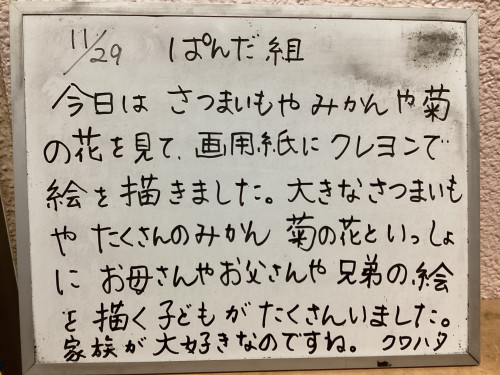 11/29 ぱんだ組
今日は さつまいもや みかんや菊
の花を見て、画用紙に クレヨンで
絵を描きました。大きなさつまいも
や たくさんのみかん 菊の花といっしょ
に お母さんやお父さんや 兄弟の絵
を描く子どもがたくさんいました。
家族が大好きなのですね。 クワハタ